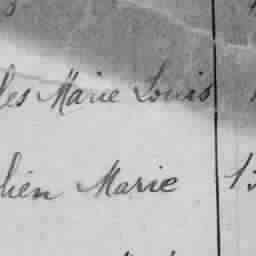 les Marie Louis
lien Marie 13